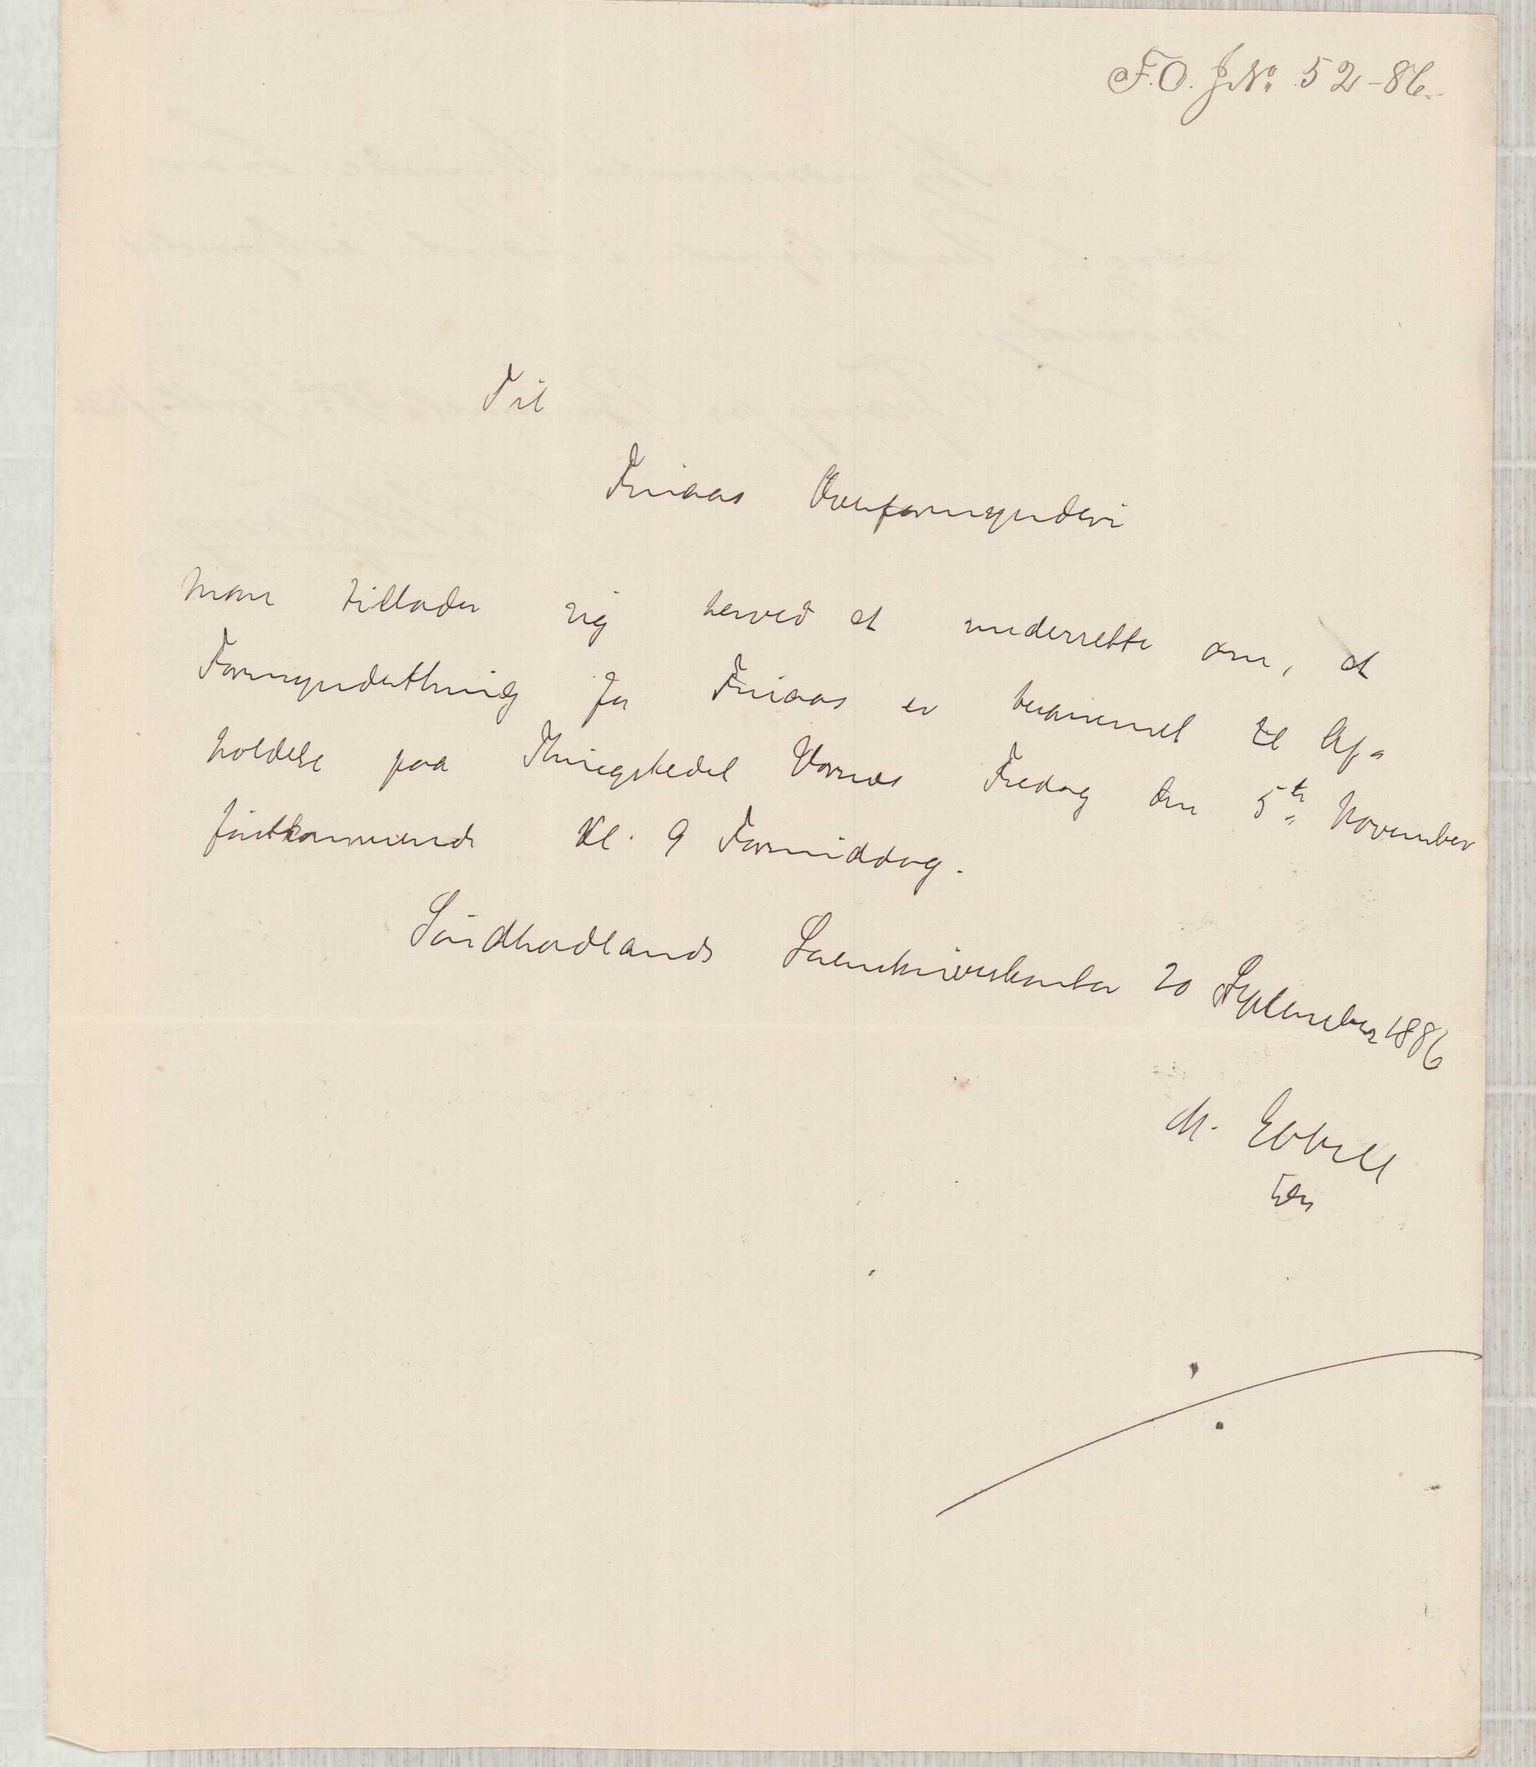 F.O. J№ 52-86.
Til
Finaas Overformynderi
Man tillader sig herved at underrette om, at
Formynderthing for Finaas er berammet til Af-
holdelse paa Thingstedet Vornes Fredag den 5te November
førstkommende Kl. 9 Formiddag.
Søndhordlands Sorenskriverkontor 20 September 1886
M. Ebbell